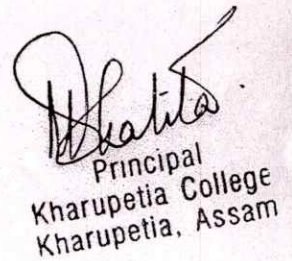 Principal
Kharupetia College
Kharupetia, Assam